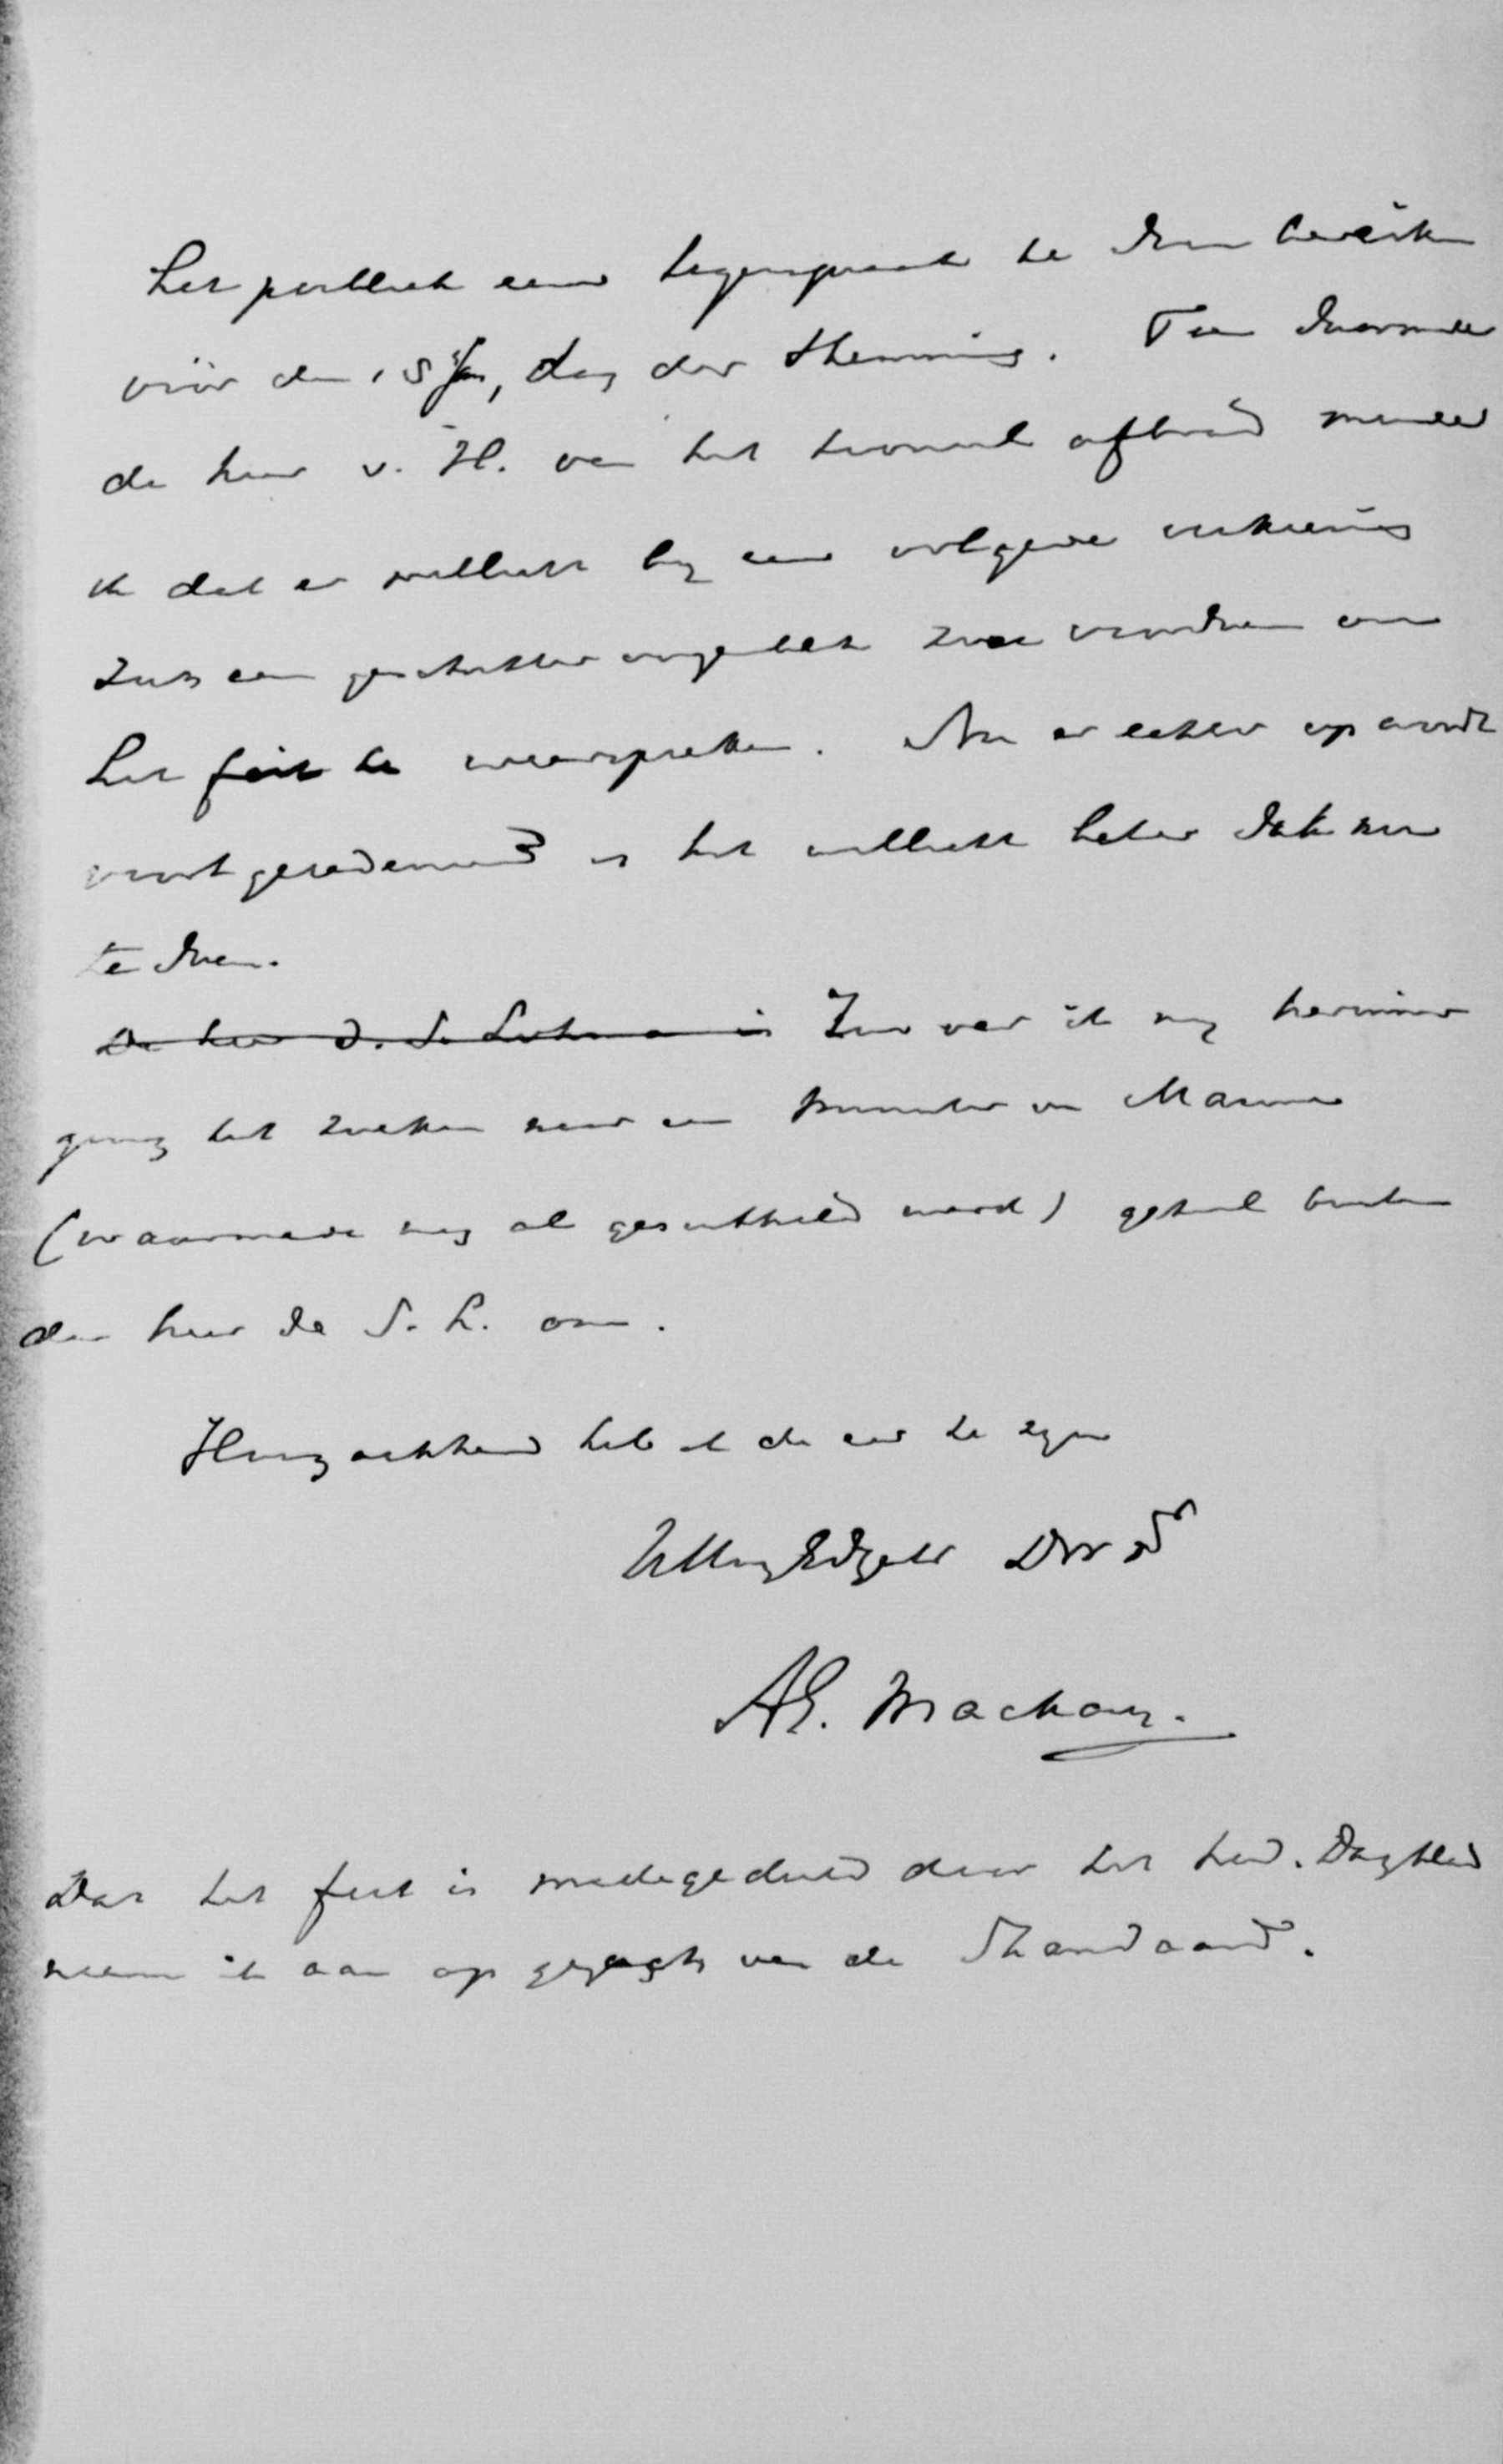 het publiek eene tegenspraak te doen bereiken
vóór den 15 Jan, dag der stemming. Toen daarmede
de heer v. H. van het tooneel aftrad meende
ik dat er wellicht bij eene volgende verkiezing
zich een geschikter oogenblik zou voordoen om
het feit te weerspreken. Nu er echter op wordt
voortgeredeneerd is het wellicht beter dit nu
te doen.
De heer d. S. Lohman is Zoover ik mij herinner
ging het zoeken naar een Minister van Marine
(waarmede nog al gesukkeld werd) geheel buiten
den heer de S. L. om.
Hoogachtend heb ik de eer te zijn
UHoogEdGeb Dw Dr
AE. Mackay.
Dat het feit is medegedeeld door het Ned. Dagblad
neem ik aan op gezag van de Standaard.